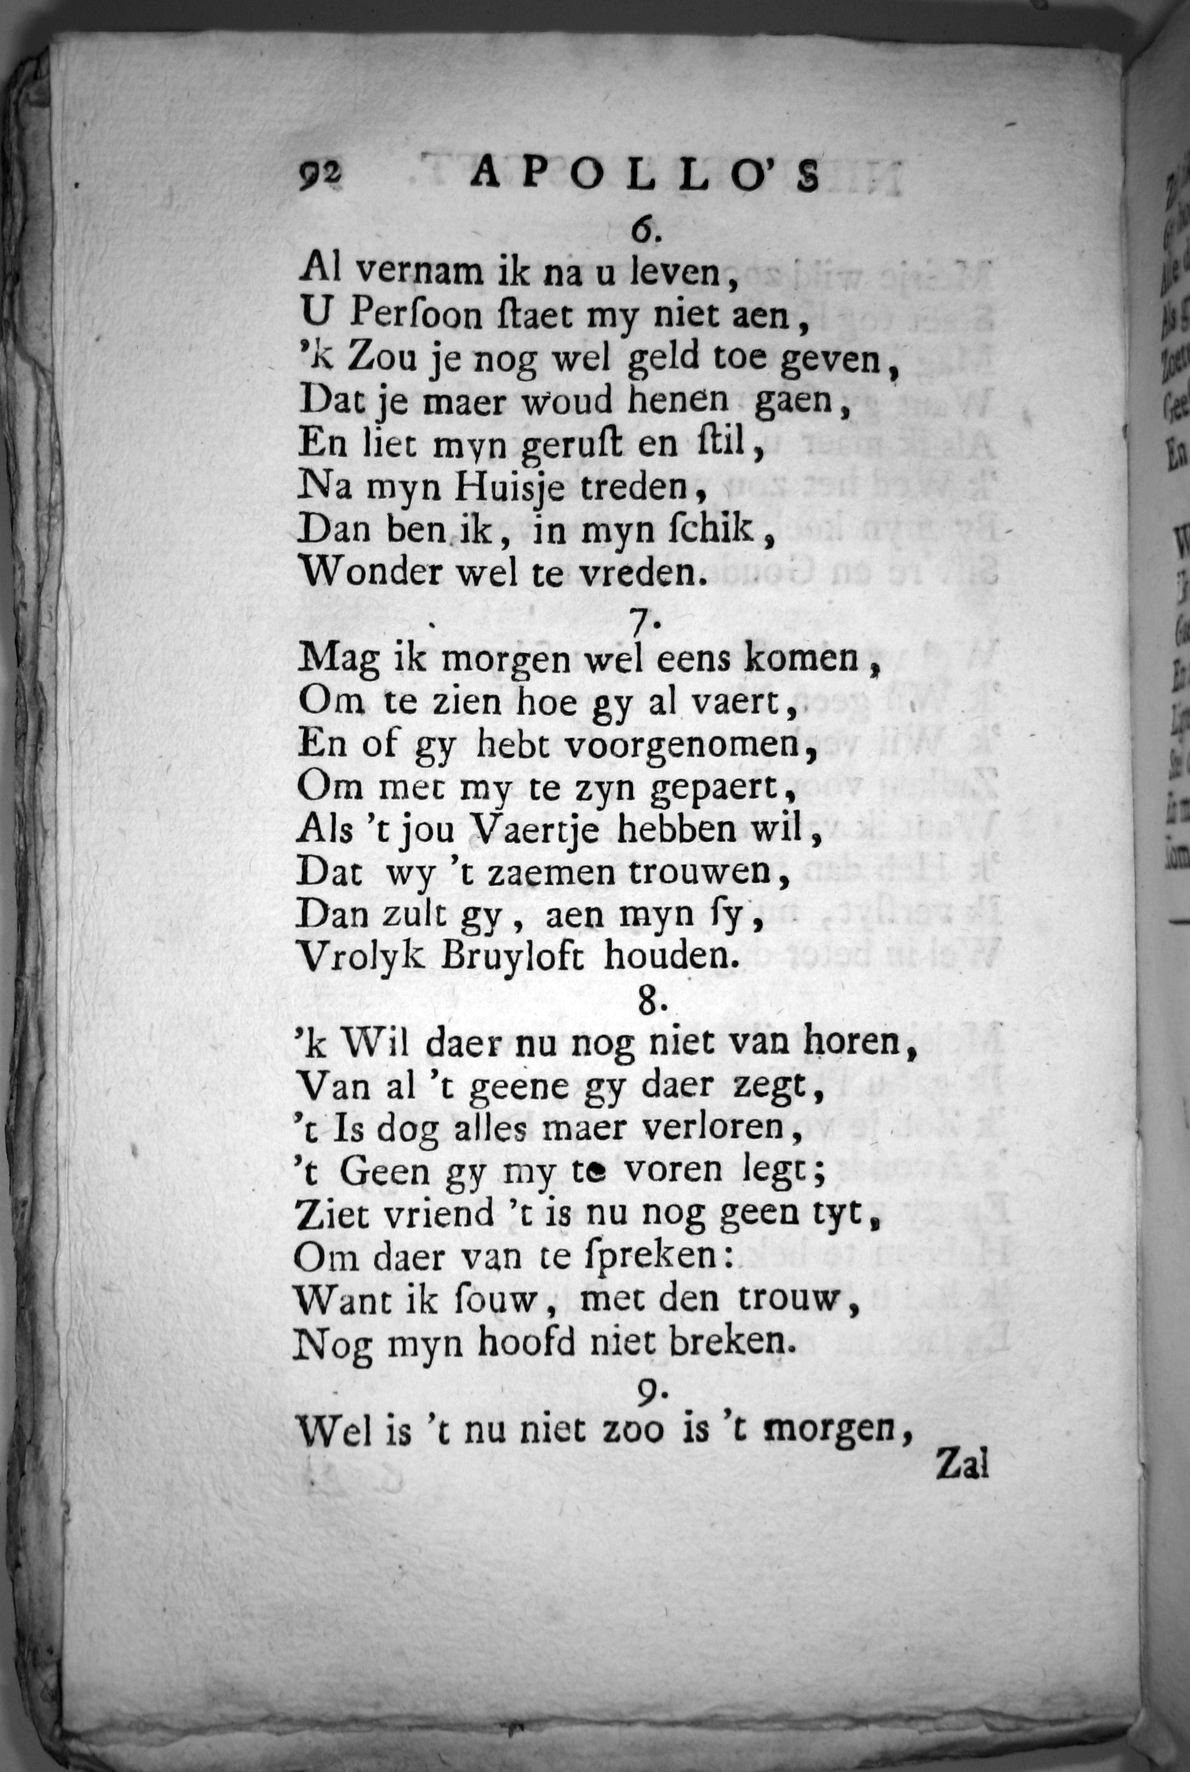 92 APOLLO'S
6.
Al vernam ik na u leven,
U Perſoon ſtaet my niet aen,
'k Zou je nog wel geld toe geven,
Dat je maer woud henen gaen,
En liet myn geruſt en ſtil,
Na myn Huisje treden,
Dan ben ik, in myn ſchik,
Wonder wel te vreden.
7.
Mag ik morgen wel eens komen,
Om te zien hoe gy al vaert,
En of gy hebt voorgenomen,
Om met my te zyn gepaert,
Als 't jou Vaertje hebben wil,
Dat wy 't zaemen trouwen,
Dan zult gy, aen myn ſy,
Vrolyk Bruyloft houden.
8.
'k Wil daer nu nog niet van horen,
Van al 't geene gy daer zegt,
't Is dog alles maer verloren,
't Geen gy my te voren legt;
Ziet vriend 't is nu nog geen tyt,
Om daer van te ſpreken:
Want ik ſouw, met den trouw,
Nog myn hoofd niet breken.
9.
Wel is 't nu niet zoo is 't morgen,
Zal